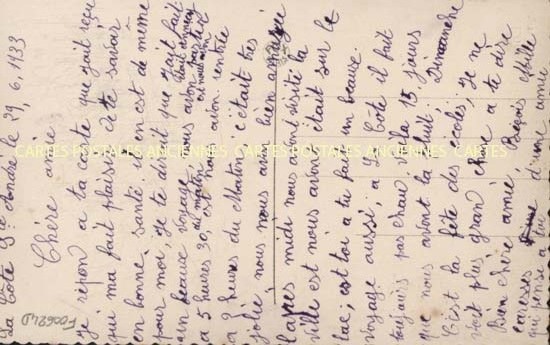 La Côte St André le 29, 6, 1933
Chère amie
Je répon a ta carte que jait reçu
qui ma fait plaisir de te savoir
en bonne santé il en est de même
pour moi, je te dit que jait fait
un beaux voyage nous avon partit
a 5 heures 30, est nous avon rentré
a 9 heures du Matin c'était très
jolie, nous nous avon bien
l'apès midi nous avons visité la
ville est nous avons était sur le
lac, est toi a tu fait un beaux
voyage aussi, a La Côte il fait
toujours pas chau de 15 jours
que nous avont la nuit Dimanche
C'est la fête des écoles, je ne
voit plus grand chose a te dire
bien chère amie Reçois
caresses d'une amie
qui pense a toi
F00624D
CARTES POSTALES ANCIENNES
CARTES POSTALES ANCIENNES
CARTES